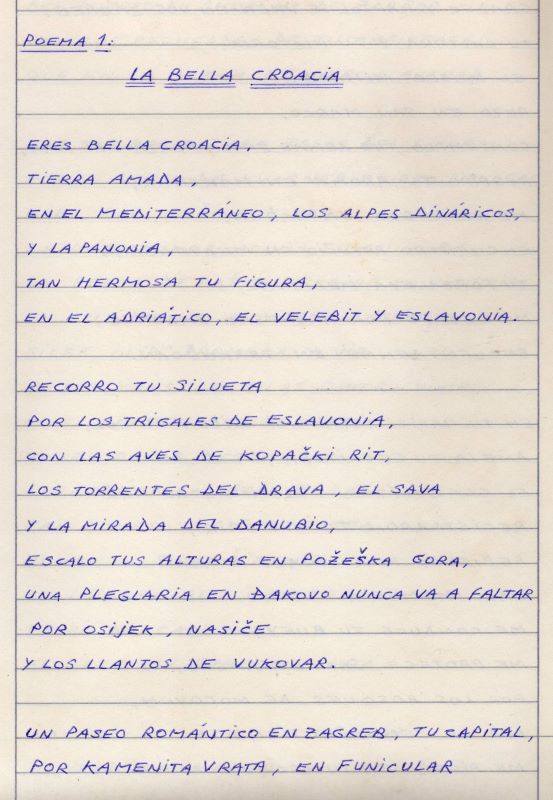 POEMA 1:
LA BELLA CROACIA
ERES BELLA CROACIA,
TIERRA AMADA,
EN EL MEDITERRÁNEO, LOS ALPES DINÁRICOS,
Y LA PANONIA,
TAN HERMOSA TU FIGURA,
EN EL ADRIÁTICO, EL VELEBIT Y ESLAVONIA.
RECORRO TU SILUETA
POR LOS TRIGALES DE ESLAVONIA,
CON LAS AVES DE KOPAČKI RIT,
LOS TORRENTES DEL DRAVA, EL SAVA
Y LA MIRADA DEL DANUBIO,
ESCALO TUS ALTURAS EN POŽEŠKA GORA,
UNA PLEGLARIA EN ĐAKOVO NUNCA VA A FALTAR
POR OSIJEK, NAŠIČE
Y LOS LLANTOS DE VUKOVAR.
UN PASEO ROMÁNTICO EN ZAGREB, TU CAPITAL,
POR KAMENITA VRATA, EN FUNICULAR